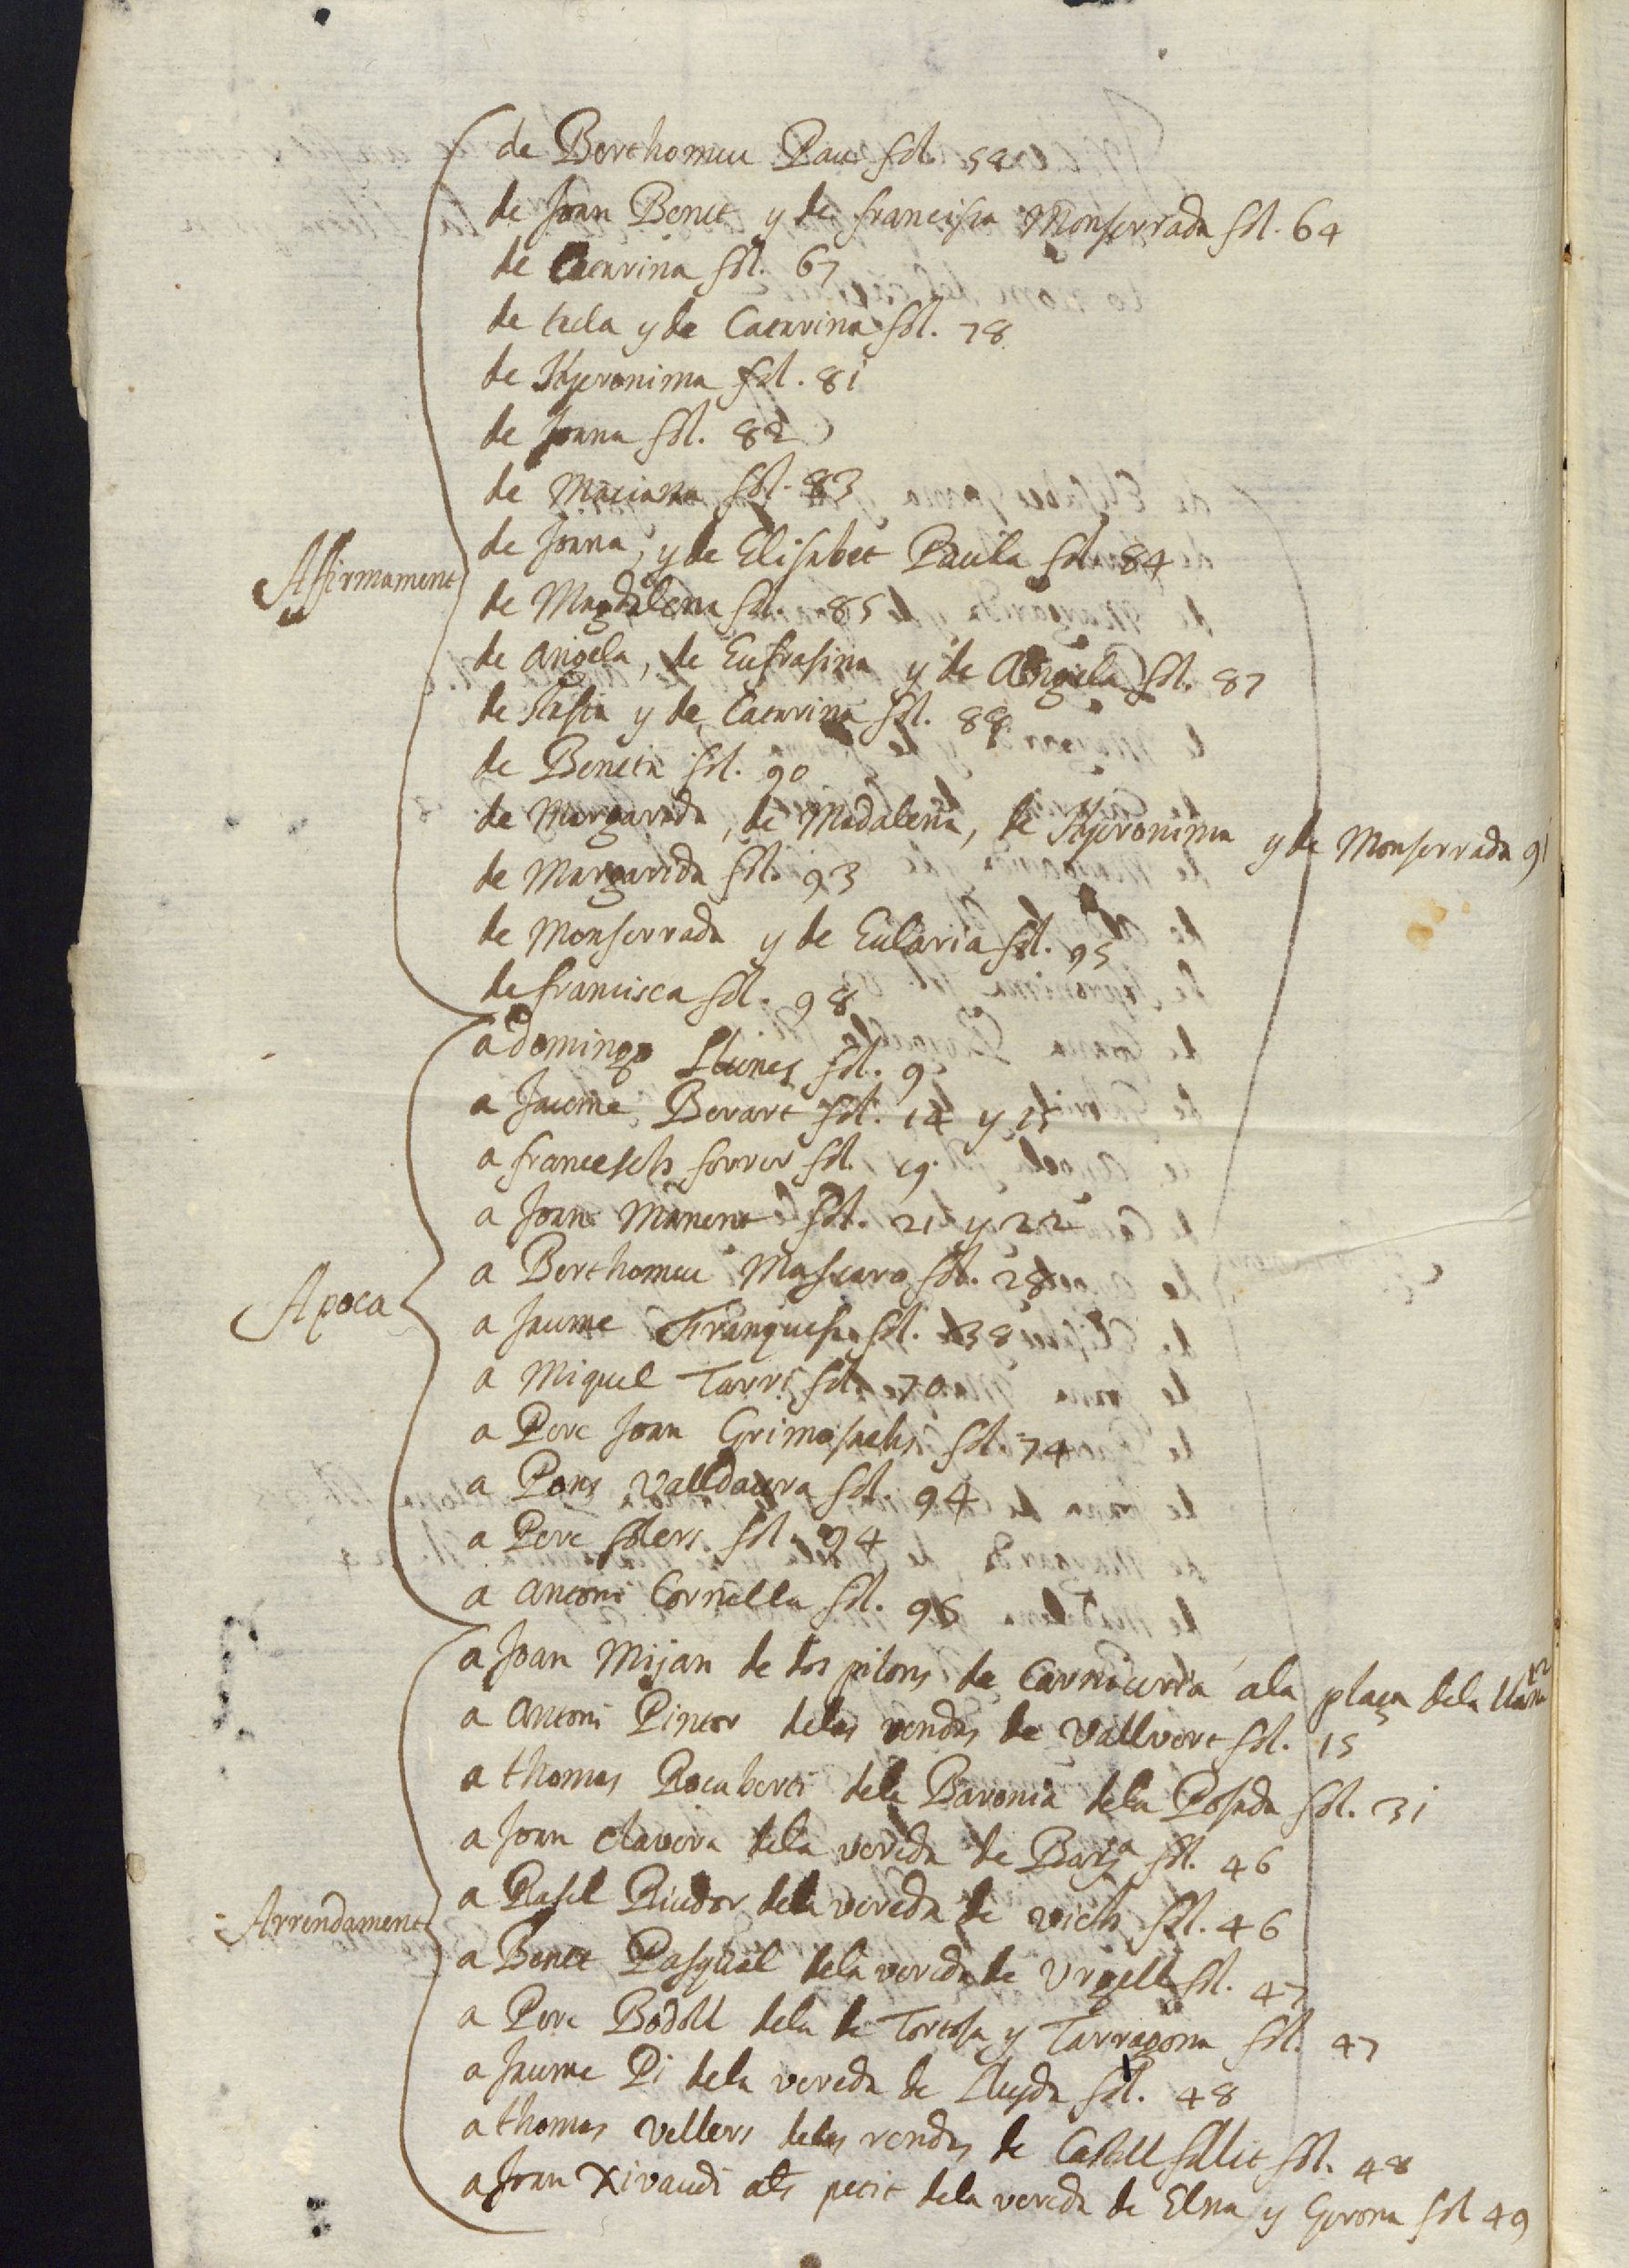 de Berthomeu Pau fol. 58
de Joan Benet y de francisca Monserrada fol. 64
de Caterina fol. 67
de tecla y de Caterina fol. 78
de Hyeronima fol. 81
de Joana fol. 82
de Mariana fol. 83
Affirmament
de Joana, y de Elisabet Paula fol 84
de Magdalena fol. 85
de Angela, de Eufrasina y de Angela fol. 87
de y de Caterina fol. 88
de Beneta fol. 90
de Margarida, de Madalena, de Hyeronima y de Monserrada 91
de Margarida fol. 93
de Monserrada y de Eularia fol. 95
de francisca fol. 98
a domingo Llines fol. 9
a Jaume Berart fol. 14 y 15
a francesch ferrer fol. 19
a Joan Manent fol. 21 y 22
a Berthomeu Mascaro fol. 28
Apoca
a Jaume Franquesa fol. 38
a Miquel Tarri fol. 70
a Pere Joan Grimosachs fol. 74
a Pons Valldaura fol. 94
a Pere solers fol. 94
a Antoni Cornella fol. 96
a Joan Mijan de dos pilons de Carniceria a la plaça dela llana 12
a Antoni Pintor delas rendas de Vallvert fol. 15
a thomas Rocaberti dela Baronia dela Posada fol. 31
a Joan Clavera dela vereda de Barᵃ fol. 46
Arrendament
a Rafel dela vereda de vich fol. 46
a Benet Pasqual dela vereda de Urgell fol. 47
a Pere Bodoll dela de Tortosa y Tarragona fol. 47
a Jaume Pi dela vereda de Lleyda fol. 48
a thomas Vellers delas rendas de Castellfollit fol. 48
a Joan Xivaudi als petit dela vereda de Elna y Gerona fol 49